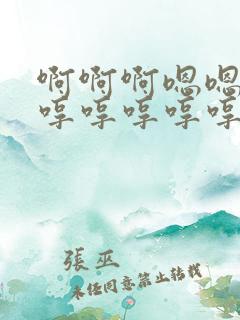 啊啊啊嗯嗯
哼哼哼哼哼
張巫
未经同意禁止转载